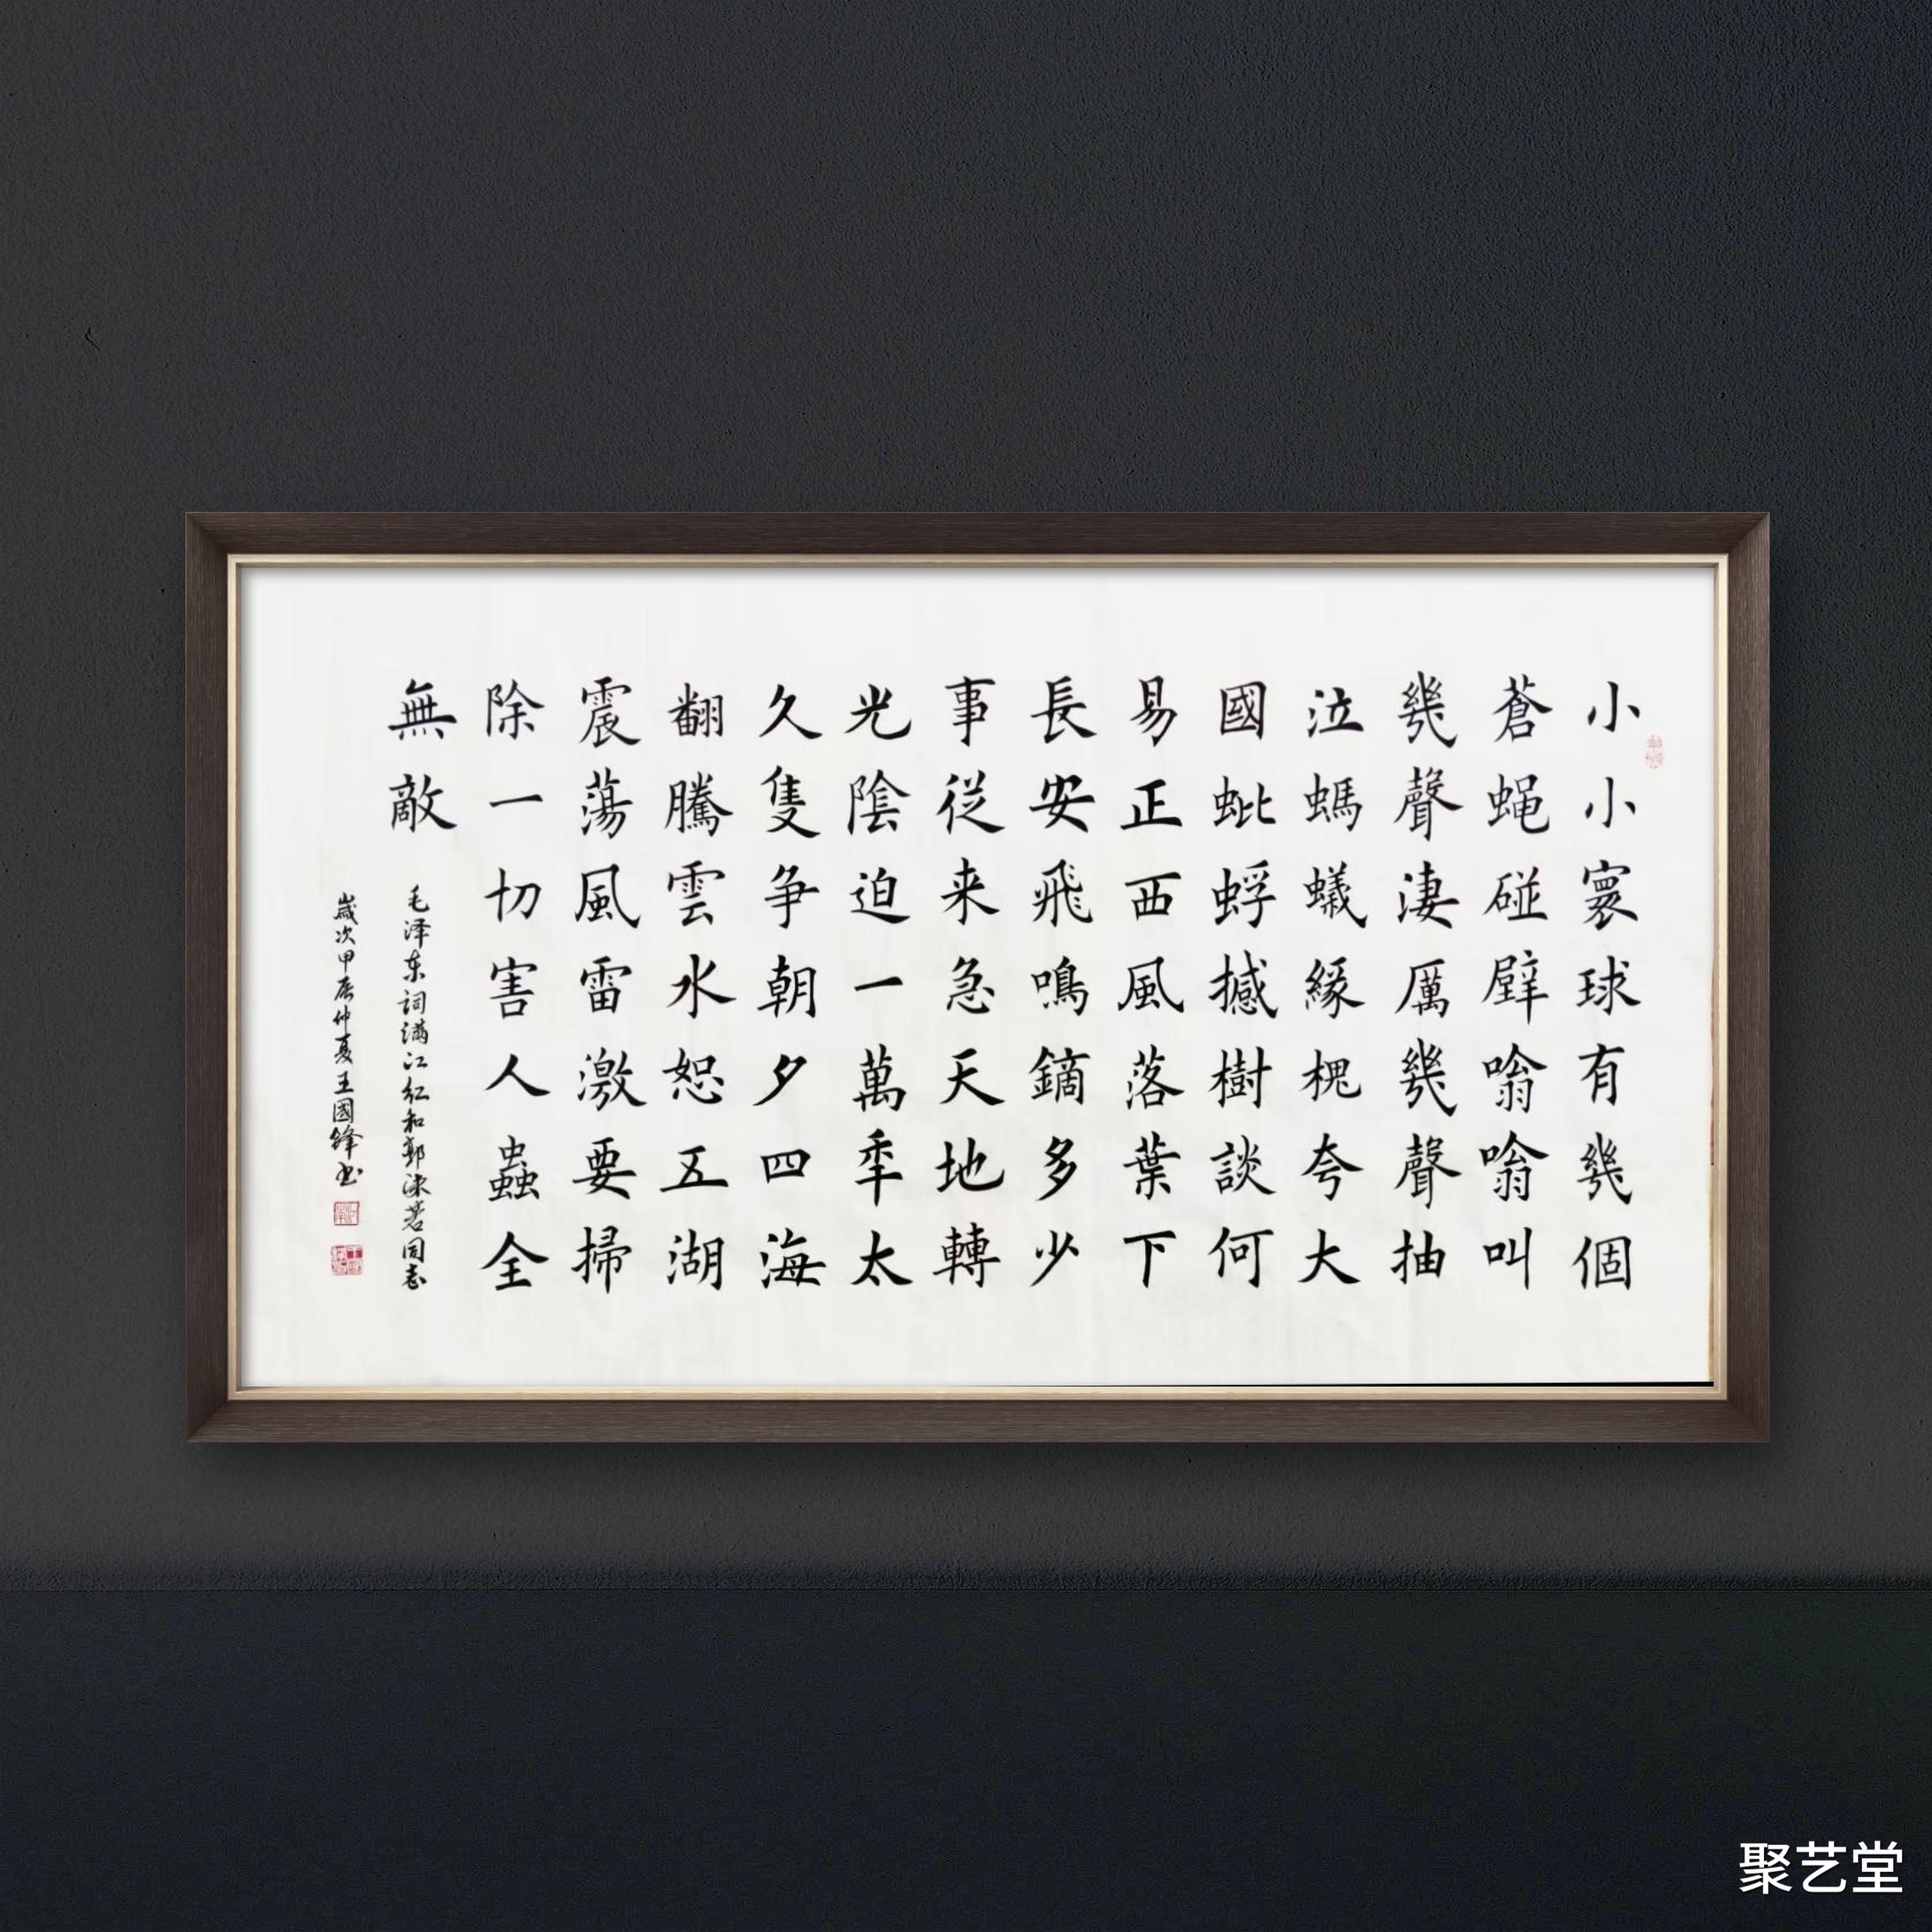 小小寰球有幾個
蒼蝇碰壁嗡嗡叫
幾聲淒厲幾聲抽
泣螞蟻緣槐夸大
國蚍蜉撼樹談何
易正西風落葉下
長安飛鳴鏑多少
事従来急天地轉
光陰迫一萬秊太
久隻争朝夕四海
翻騰雲水恕五湖
震蕩風雷激要掃
除一切害人蟲全
無敵
毛泽东詞满江红和郭沫若同志
歲次甲辰仲夏王國鋒书
聚艺堂